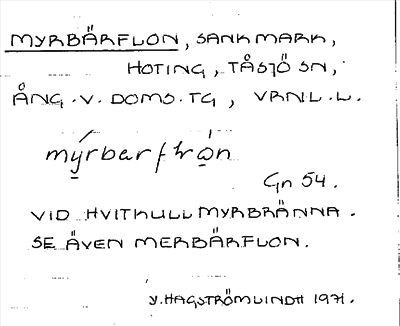 MYRBÄRFLON, SANKMARK,
HOTING, TÅSJÖ SN,
ÅNG.V.DOMS.TG, VRNL.L.
Gn 54.
VID HVITKULLMYRBRÄNNA.
SE ÄVEN MERBÄRFLON.
Y.HAGSTRÖMLINDH 1971.